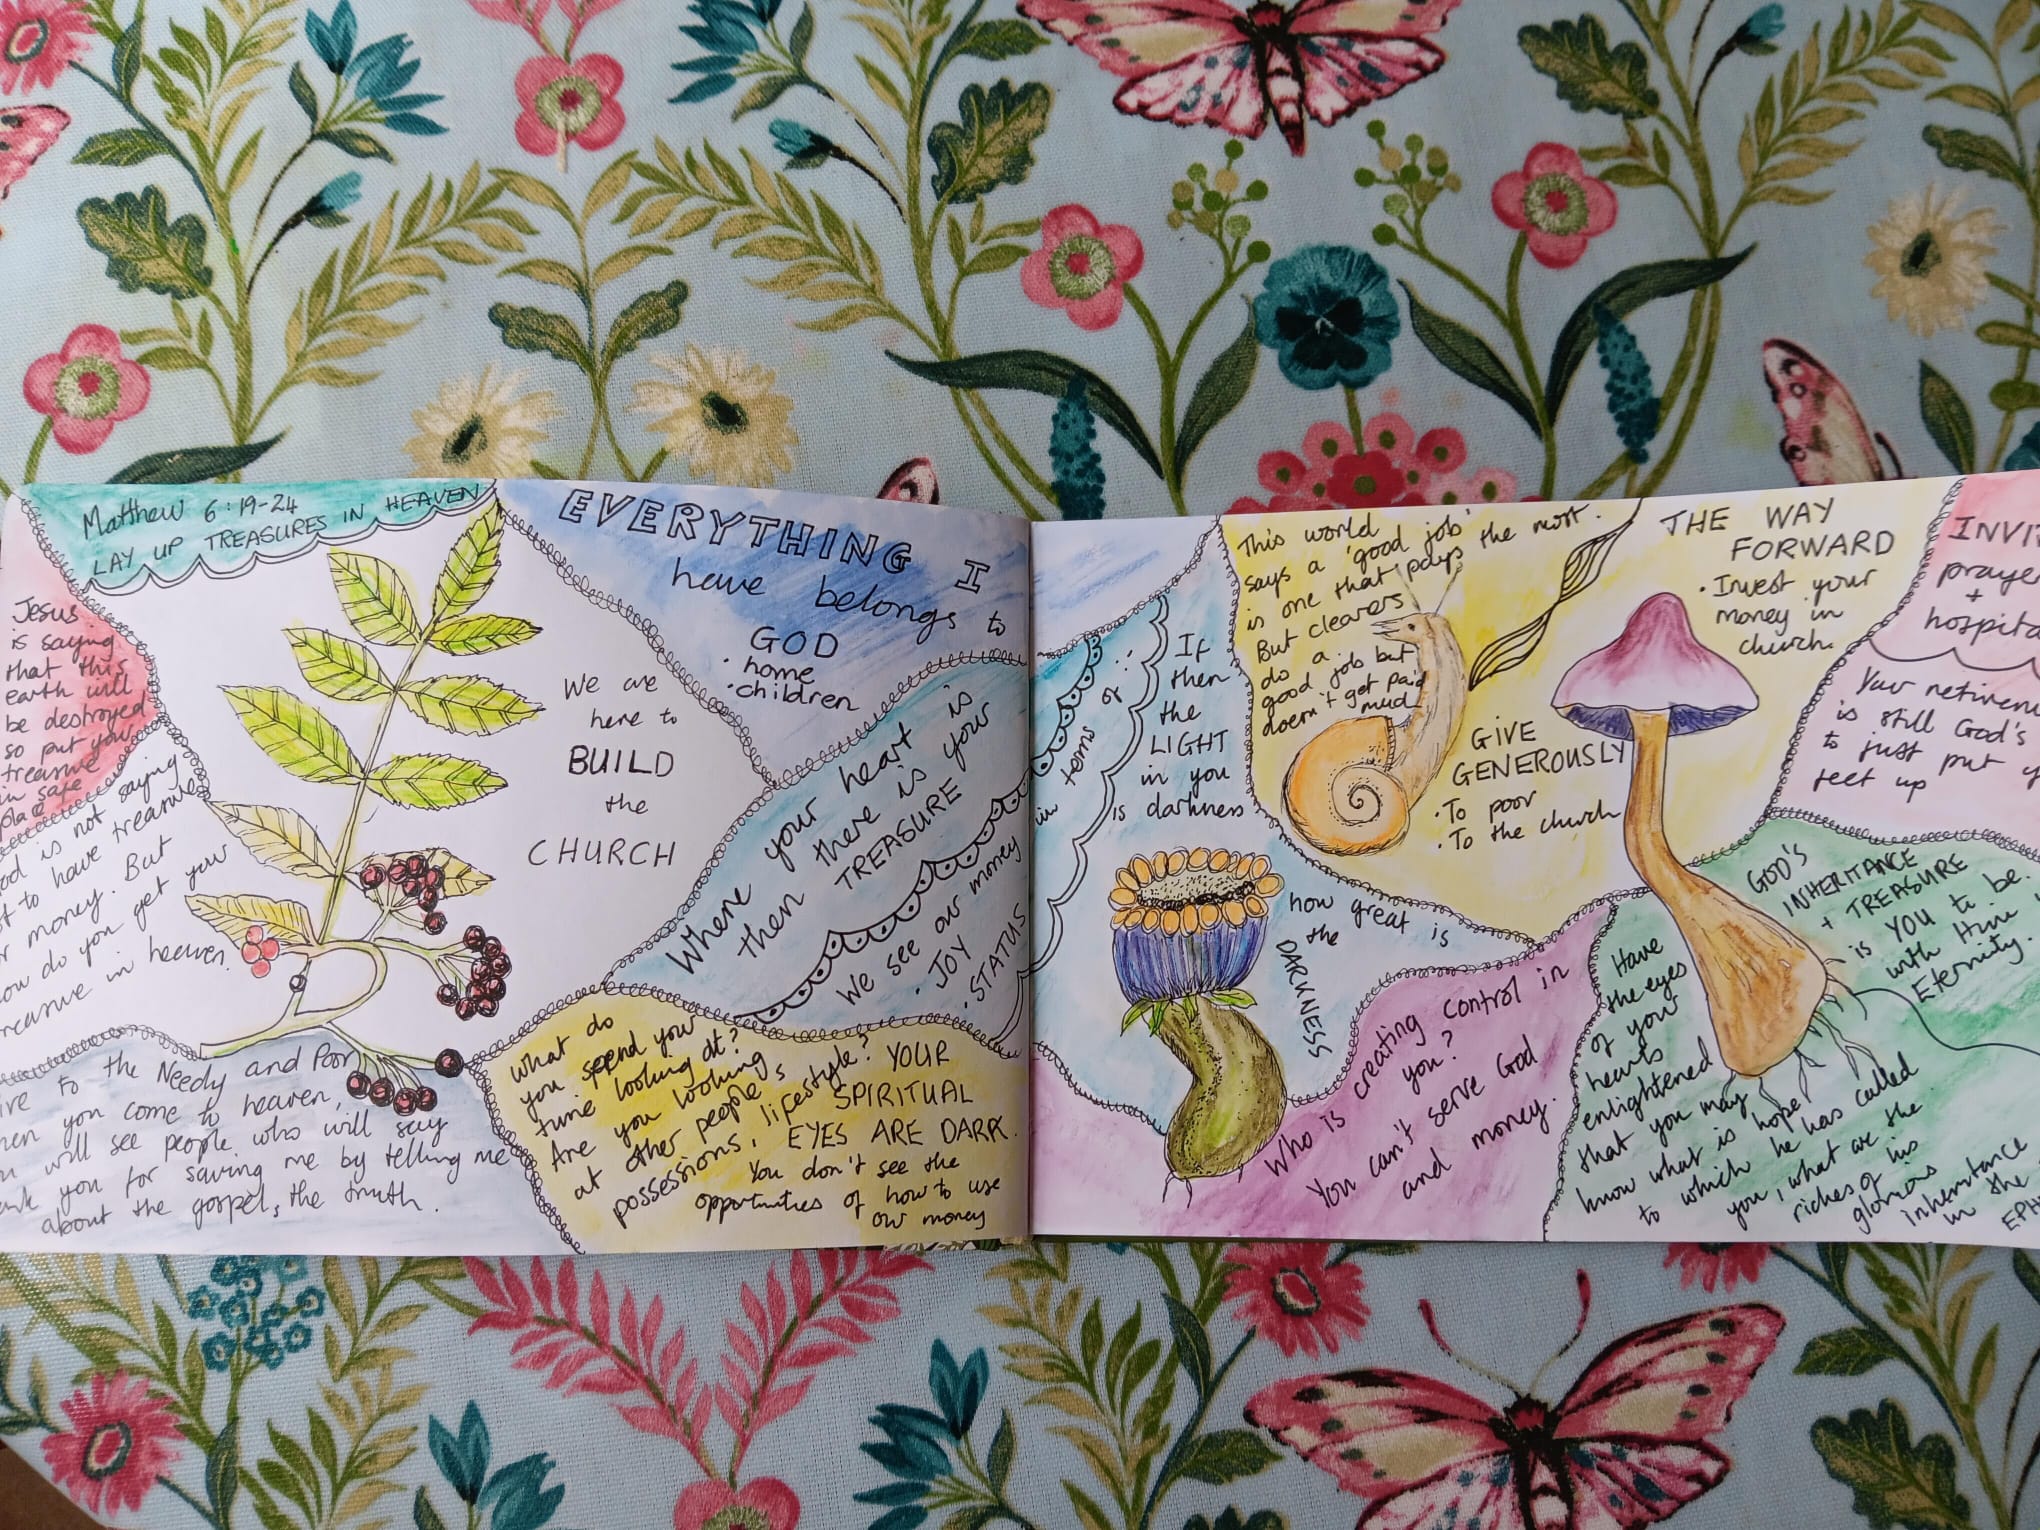 Matthew 6:19-24
LAY UP TREASURES IN HEAVEN
Jesus
is saying
that this
earth will
be destroyed
so put your
treasure
in safe
God is not saying
not to have treasure
or money. But
how do you get your
treasure in heaven.
We are
here to
BUILD
the
CHURCH
EVERYTHING I
have belongs to
GOD
· home
· children
Where your heart is
then there is your
TREASURE
We see our money
in
· JOY
· STATUS
to the Needy and Poor
when you come to heaven,
will see people who will say
you for saving me by telling me
about the gospel, the truth.
What do
you spend your
time looking at?
Are you looking
at other people,s
possessions, lifestyle? YOUR
SPIRITUAL
EYES ARE DARK.
You don't see the
opportunities of how to use
our money
If
then
the
LIGHT
in you
is darkness
how great is
the
DARKNESS
This world
says a 'good job'
is one that pays the most.
But cleaners
do a
good job but
doesn't get paid
mud
THE WAY
FORWARD
· Invest your
money in
church.
GIVE
GENEROUSLY
· To poor
· To the church
praye
+
hospita
Your retirem
is still God's
to just put y
feet up
Who is creating control in
you?
You can't serve God
and money.
GOD'S
INHERITANCE
+ TREASURE
is YOU to be
with Him
Eternity.
Have
the eyes
of your
hearts
enlightened
that you may
know what is hope
to which he has called
you, what are the
riches of his
glorious
inheritance
in the
EPH